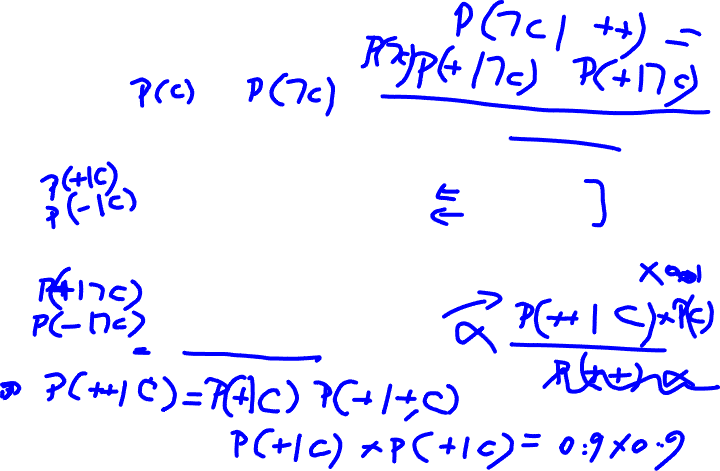 P(¬c | ++) =
P(¬c) P(+|¬c) P(+|¬c)
P(c) P(¬c)
P(+|c)
P(-|c)
P(+|¬c)
P(-|¬c)
α P(++|C) × P(c)
P(++) α
P(++|C) = P(+|C) P(+|+,C)
P(+|C) × P(+|C) = 0.9 × 0.9